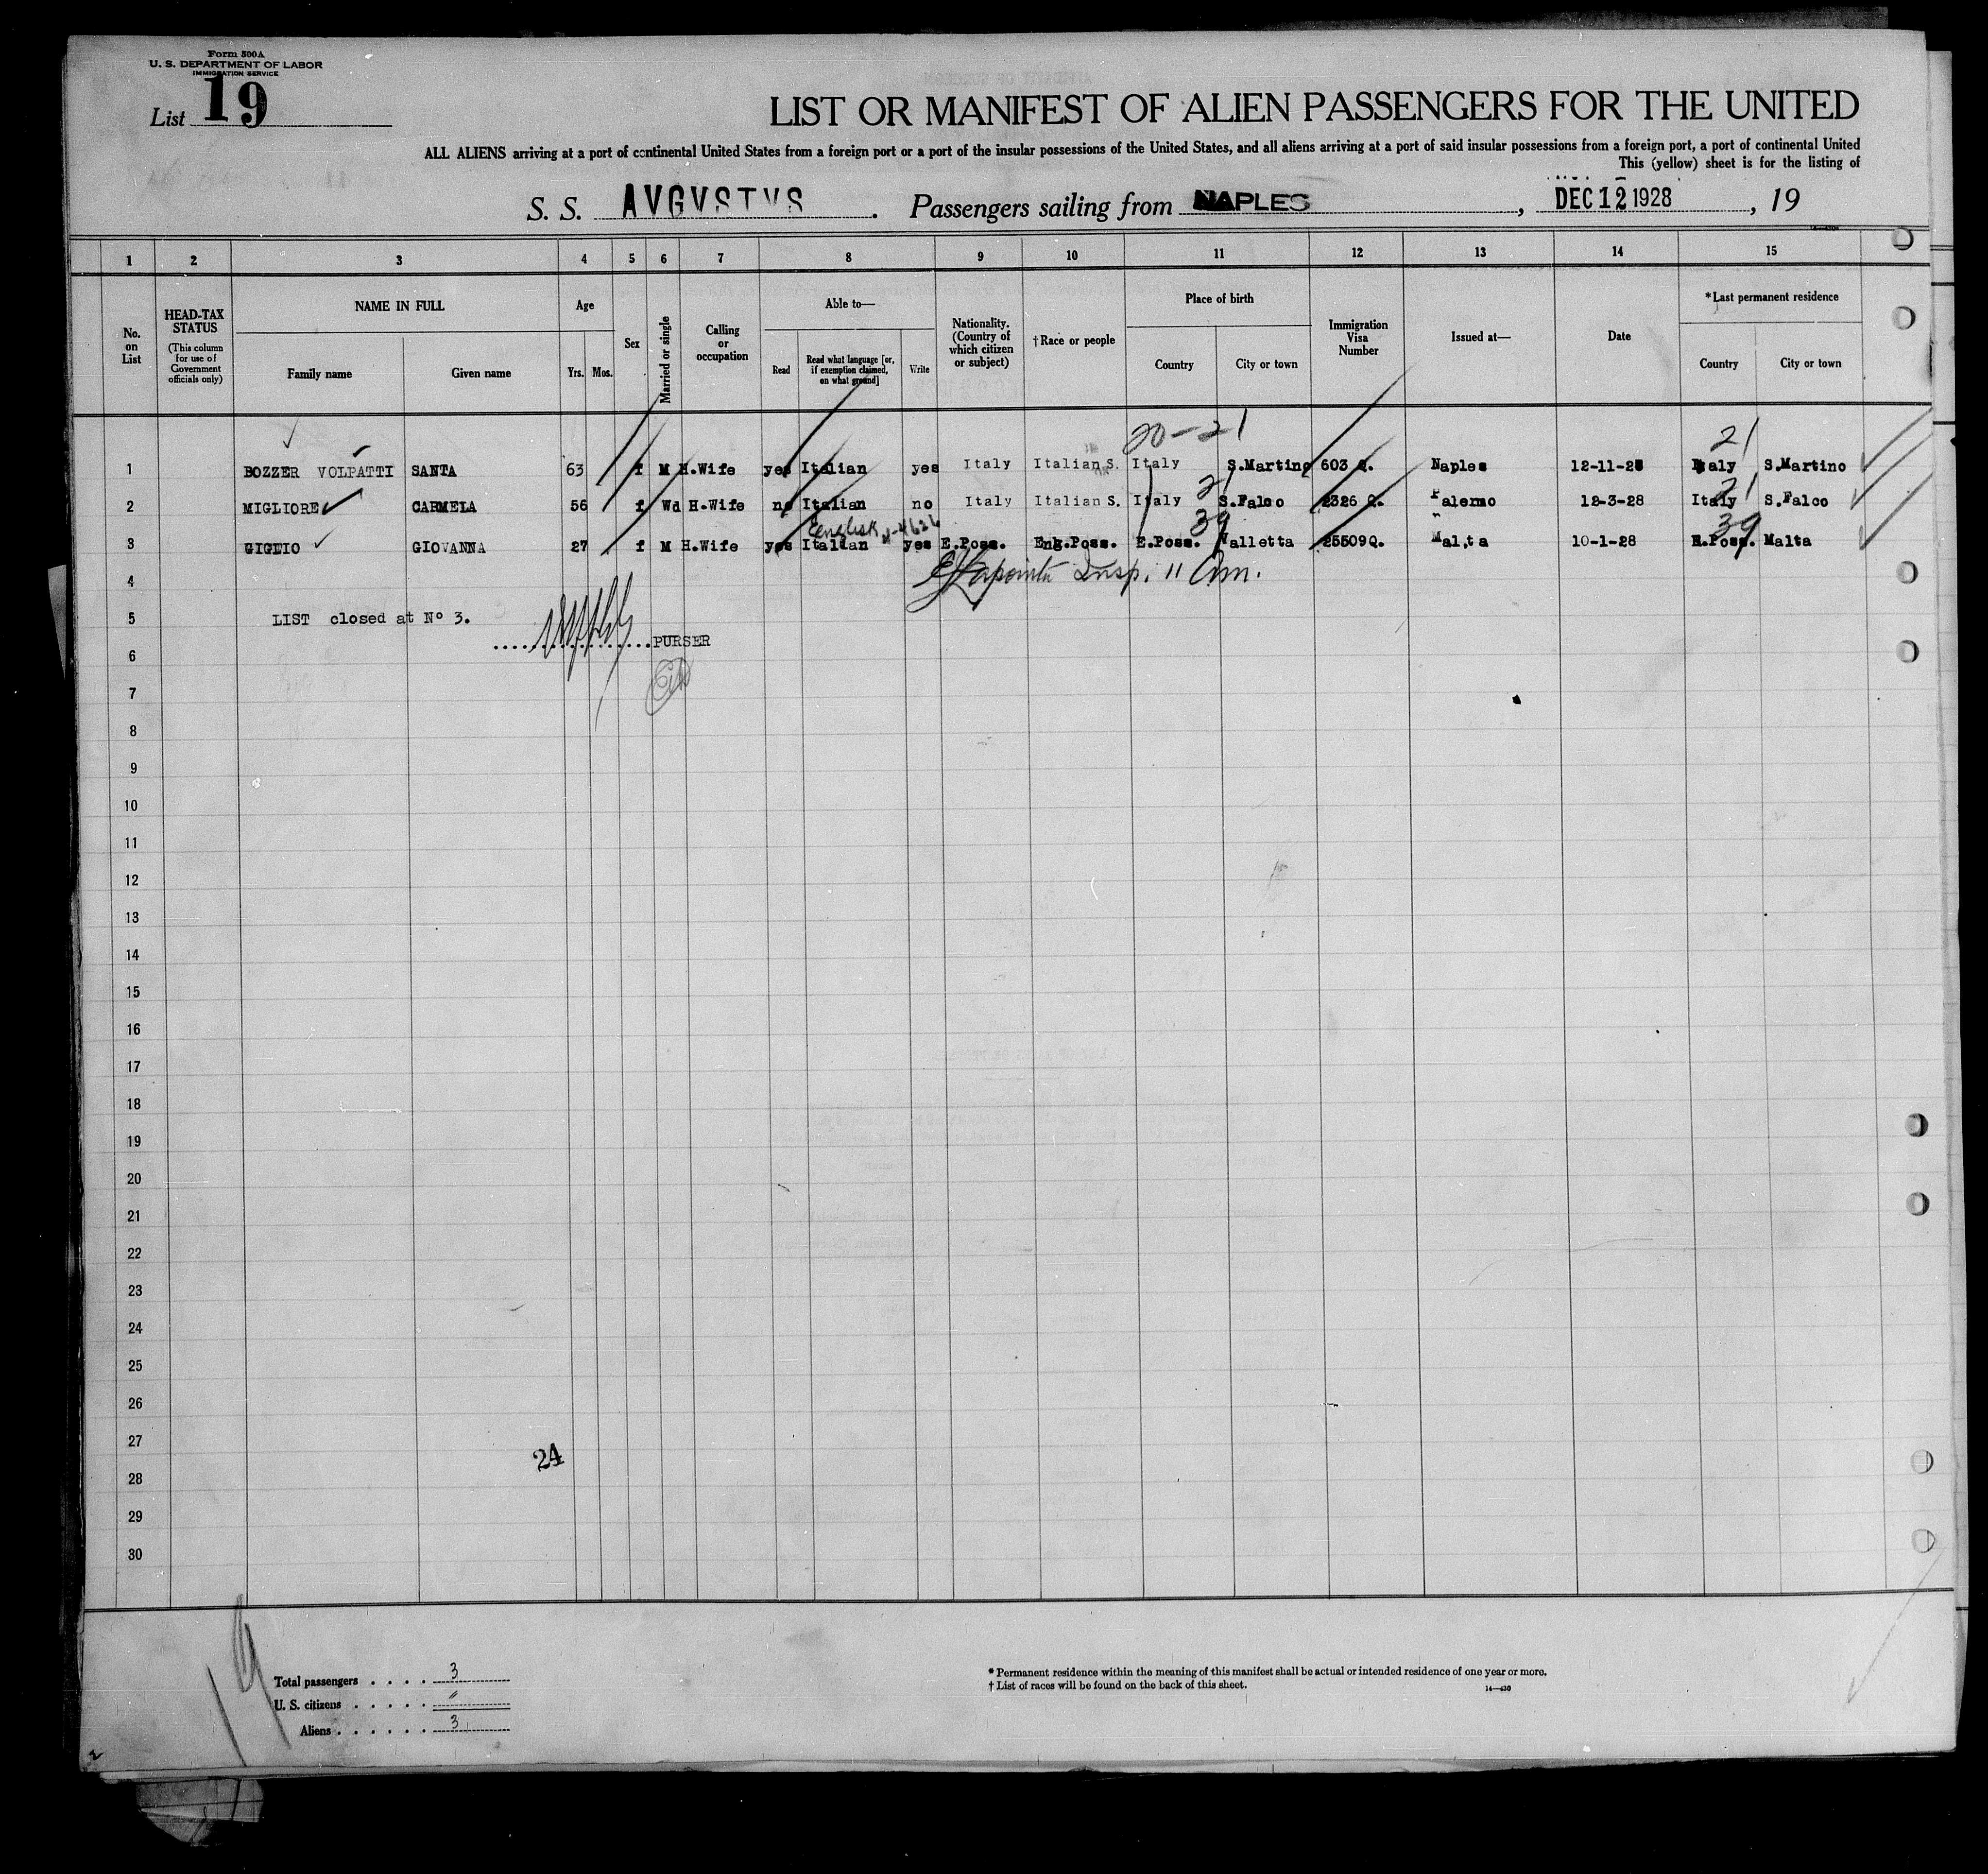 Form 500A
U. S. DEPARTMENT OF LABOR
IMMIGRATION SERVICE
List 19
LIST OR MANIFEST OF ALIEN PASSENGERS FOR THE UNITED
ALL ALIENS arriving at a port of continental United States from a foreign port or a port of the insular possessions of the United States, and all aliens arriving at a port of said insular possessions from a foreign port, a port of continental United
This (yellow) sheet is for the listing of
S. S. AVGVSTVS. Passengers sailing from NAPLES, DEC 12 1928, 19
1 2 3 4 5 6 7 8 9 10 11 12 13 14 15
No. on List
HEAD-TAX STATUS
(This column for use of Government officials only)
NAME IN FULL
Family name Given name
Age
Yrs. Mos.
Sex
Married or single
Calling or occupation
Able to—
Read
Read what language [or, if exemption claimed, on what ground]
Write
Nationality. (Country of which citizen or subject)
†Race or people
Place of birth
Country City or town
Immigration Visa Number
Issued at—
Date
*Last permanent residence
Country City or town
20-21 21
1 BOZZER VOLPATTI SANTA 63 f M H.Wife yes Italian yes Italy Italian S. Italy S.Martino 603 Q. Naples 12-11-28 Italy S.Martino
21 21
2 MIGLIORE CARMELA 56 f Wd H.Wife no Italian no Italy Italian S. Italy S.Falco 2326 Q. Palermo 12-3-28 Italy S.Falco
English 39 39
3 GIGLIO GIOVANNA 27 f M H.Wife yes Italian yes E.Poss. Eng.Poss. E.Poss. Valletta 25509Q. Malta 10-1-28 E.Poss. Malta
4 Insp.
5 LIST closed at Nº 3.
PURSER
6
7
8
9
10
11
12
13
14
15
16
17
18
19
20
21
22
23
24
25
26
27
24
28
29
30
19
Total passengers . . . . 3
U. S. citizens . . . . . "
Aliens . . . . . . 3
* Permanent residence within the meaning of this manifest shall be actual or intended residence of one year or more.
† List of races will be found on the back of this sheet.
14—430
2